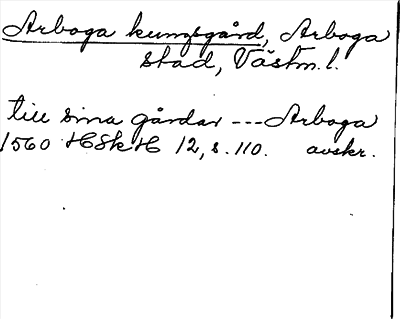 Arboga kungsgård, Arboga
stad, Västm.l.
till sina gårdar --- Arboga
1560 HSkH 12, s. 110. avskr.